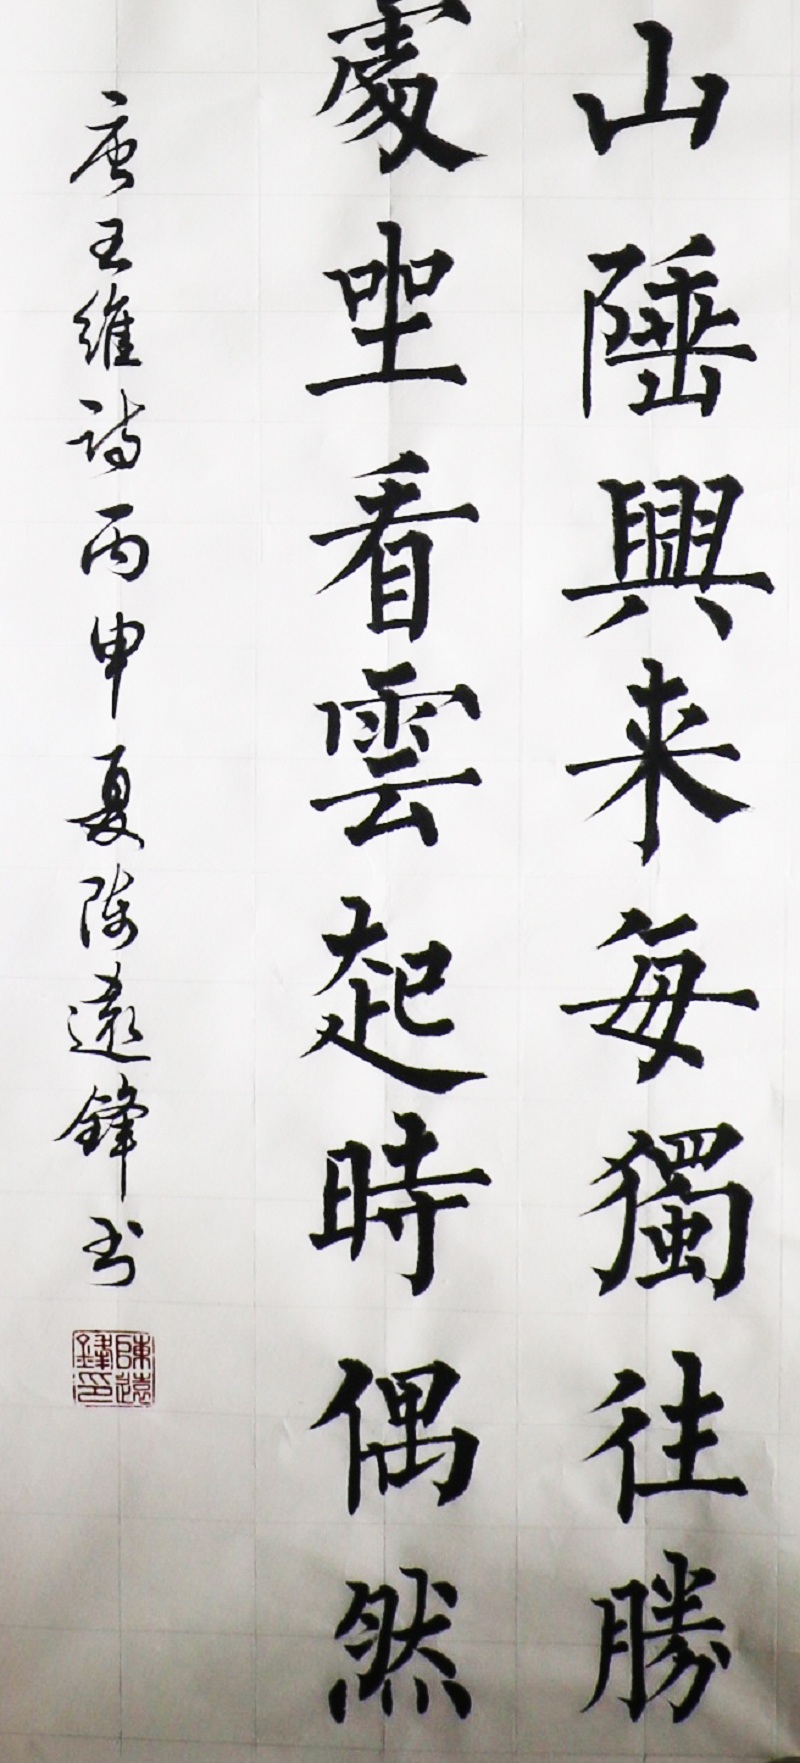 山陲興来每獨往勝
處坐看雲起時偶然
唐王維詩丙申夏陈遠鋒书
陳遠鋒印